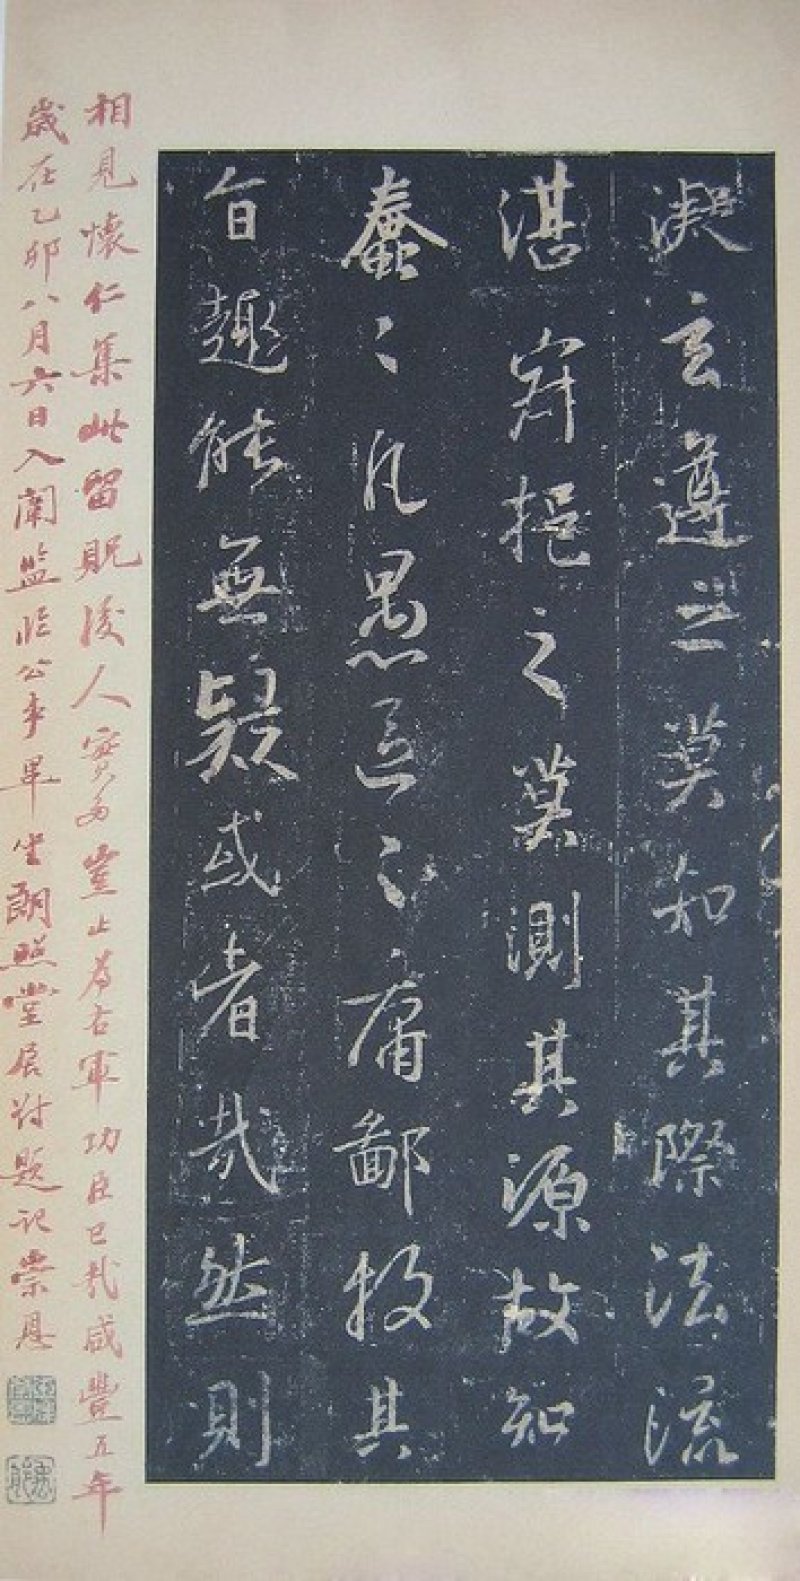 凝玄遵之莫知其際法流
湛寂挹之莫測其源故知
蠢〻凡愚區〻庸鄙投其
旨趣能無疑或者哉然則
相見懷仁集此留貺後人實多豈止為右軍功臣已哉咸豐五年
歲在乙卯八月六日入闈監臨公事畢坐朗照堂展對題記崇恩